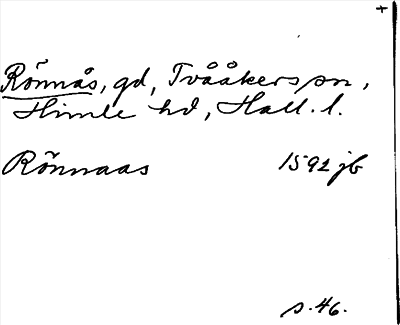 +
Rönnås, gd, Tvååkers sn,
Himle hd, Hall. l.
Rönnaas 1592 jb
s. 46.